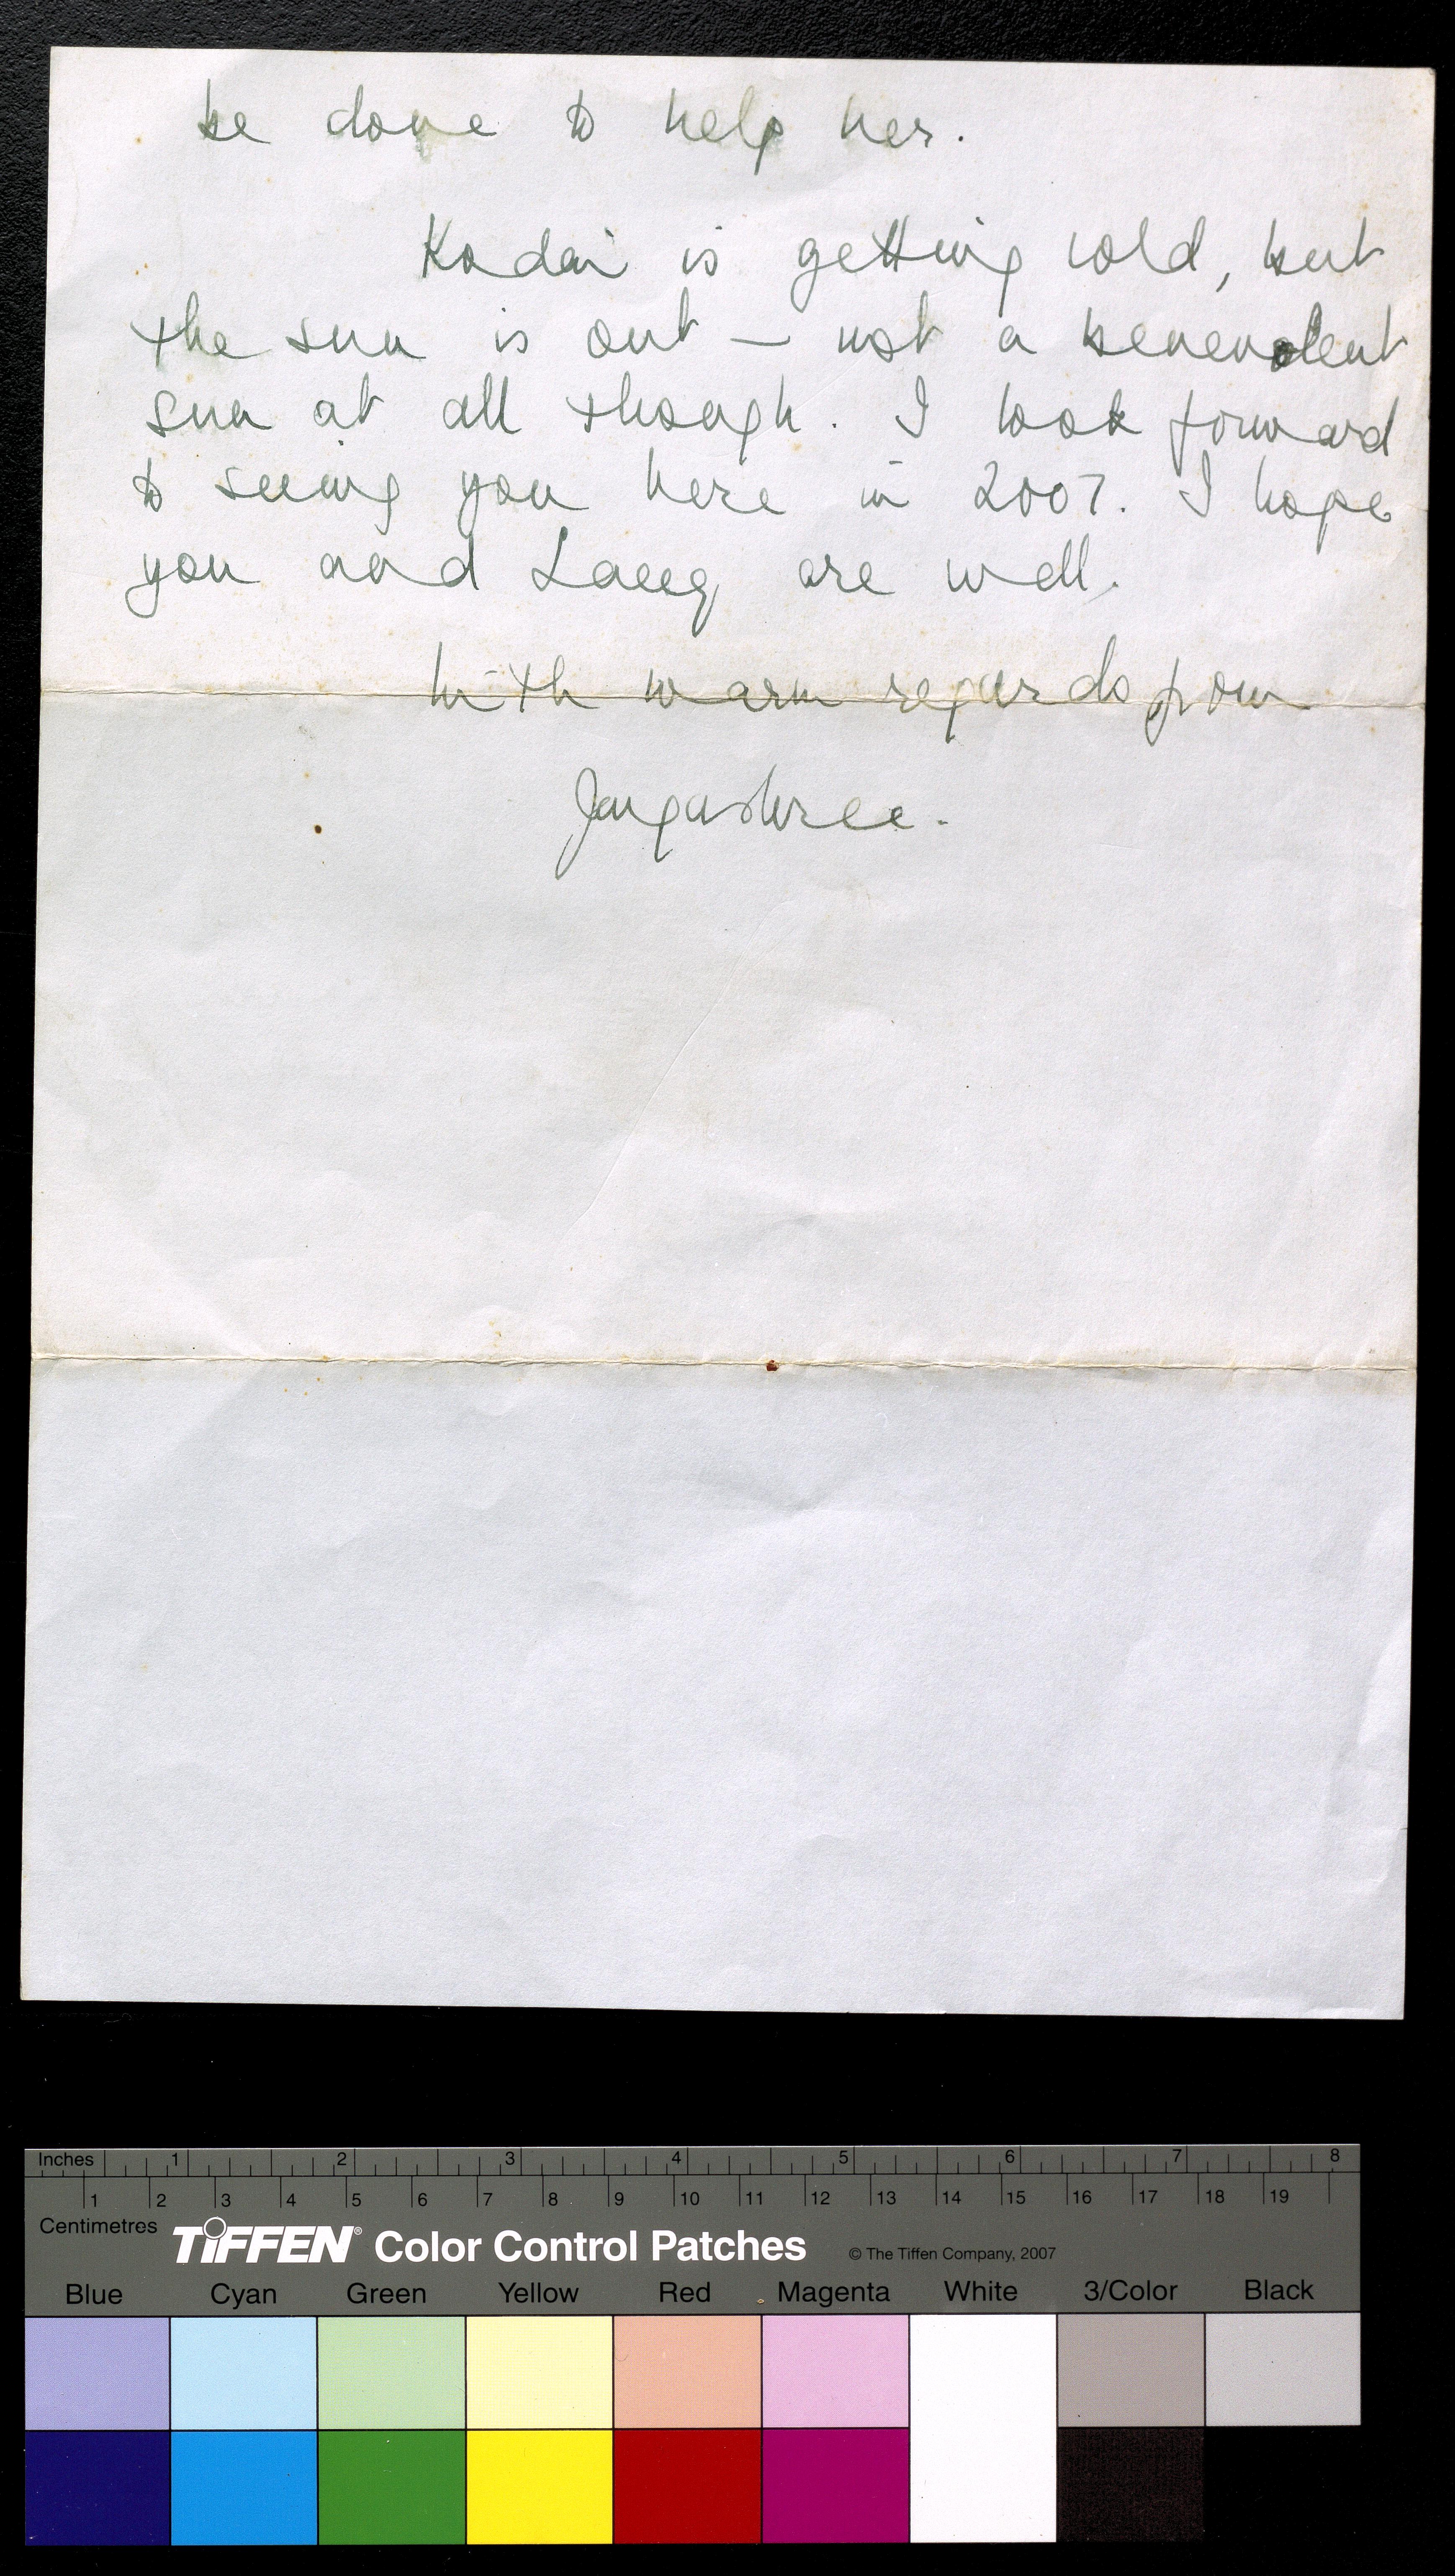 be done to help her.
Kodai is getting cold, but
the sun is out – not a benevolent
sun at all though. I look forward
to seeing you here in 2007. I hope
you and are well.
With warm regards from
Jayashree.
Inches 1 2 3 4 5 6 7 8
1 2 3 4 5 6 7 8 9 10 11 12 13 14 15 16 17 18 19
Centimetres
TIFFEN® Color Control Patches © The Tiffen Company, 2007
Blue Cyan Green Yellow Red Magenta White 3/Color Black